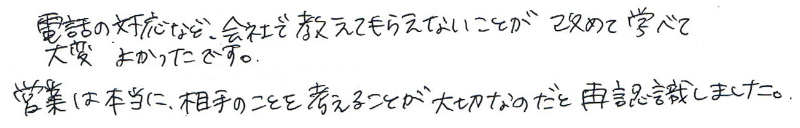 電話の対応など、会社で教えてもらえないことが改めて学べて
大変よかったです。
営業は本当に、相手のことを考えることが大切なのだと再認識しました。